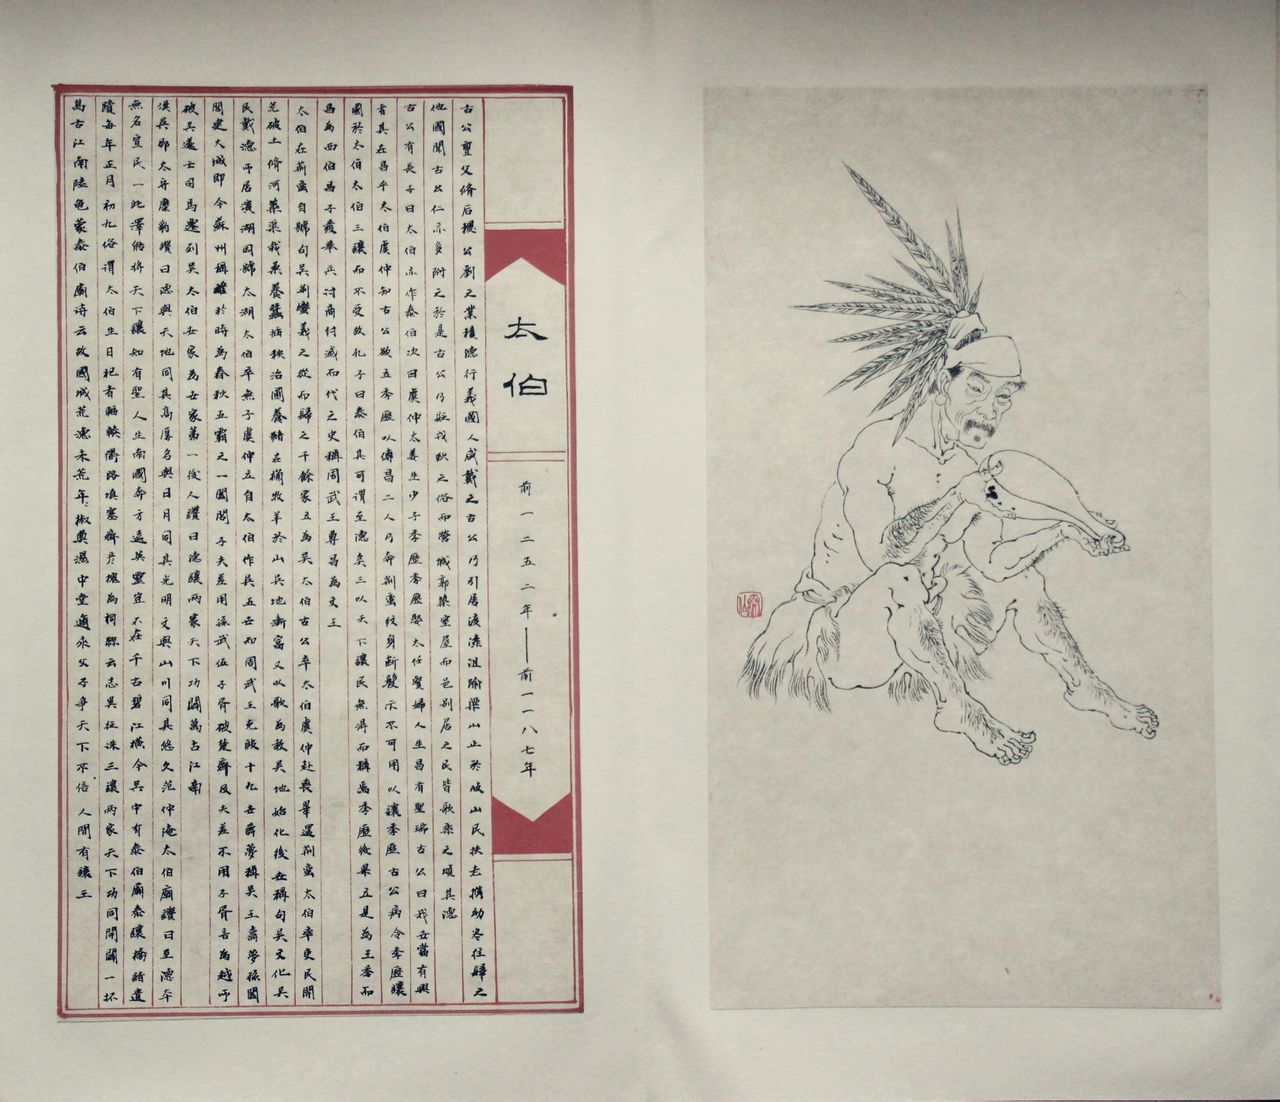 太伯
前一二五二年——前一一八七年
古公亶父脩后稷公劉之業積德行義國人咸戴之古公乃引居渡漆沮隃梁山止於岐山民扶老攜幼
他國聞古公仁亦多附之於是古公乃貶戎狄之俗而營城郭築室屋而邑別居之民皆歌樂之頌其德
古公有長子曰太伯亦作泰伯次曰虞仲太姜生少子季歷季歷娶太任賢婦人生昌有聖瑞古公曰我世當有興
者其在昌乎太伯虞仲知古公欲立季歷以傳昌二人乃奔荊蠻紋身斷髮示不可用以讓季歷古公病令季歷讓
國於太伯太伯三讓而不受故孔子曰泰伯其可謂至德矣三以天下讓民無得而稱焉季歷後果立是為王季而
昌為西伯昌子發舉兵討商紂滅而代之史稱周武王尊昌為文王
太伯在荊蠻自號句吳荊蠻義之從而歸之千餘家立為吳太伯古公卒太伯虞仲赴喪畢還荊蠻太伯率吏民開
荒破土脩河 養蠶 治國養豬 牧羊於山吳地漸富又以歌為教吳地始化後世稱句吳文化吳
民戴德所居濱湖因號太湖太伯卒無子虞仲立自太伯作吳五世而周武王克殷十九世壽夢稱吳王壽夢孫國
闔建大城即今蘇州稱雄於時為春秋五霸之一國闔子夫差用孫武伍子胥破楚齊及夫差不用子胥言為越所
破吳遂亡司馬遷列吳太伯世家為世家第一後人讚曰德讓兩家天下功開萬古江南
漢吳郡太守糜豹讚曰德與天地同其高厚名與日月同其光明文與山川同其悠久范仲淹太伯廟讚曰至德本
無名宣民一此澤能將天下讓知有聖人生南國奔方遠英靈宜不在千古碧江橫今吳中有泰伯廟泰讓橋諸遺
蹟每年正月初九俗謂太伯生日祀者輻輳衢路填塞 為祠聯云志異征誅三讓兩家天下功同開闢一抔
萬古江南陸龜蒙泰伯廟詩云故國城荒德未荒年年椒奠濕中堂邇來父子爭天下不信人間有讓王